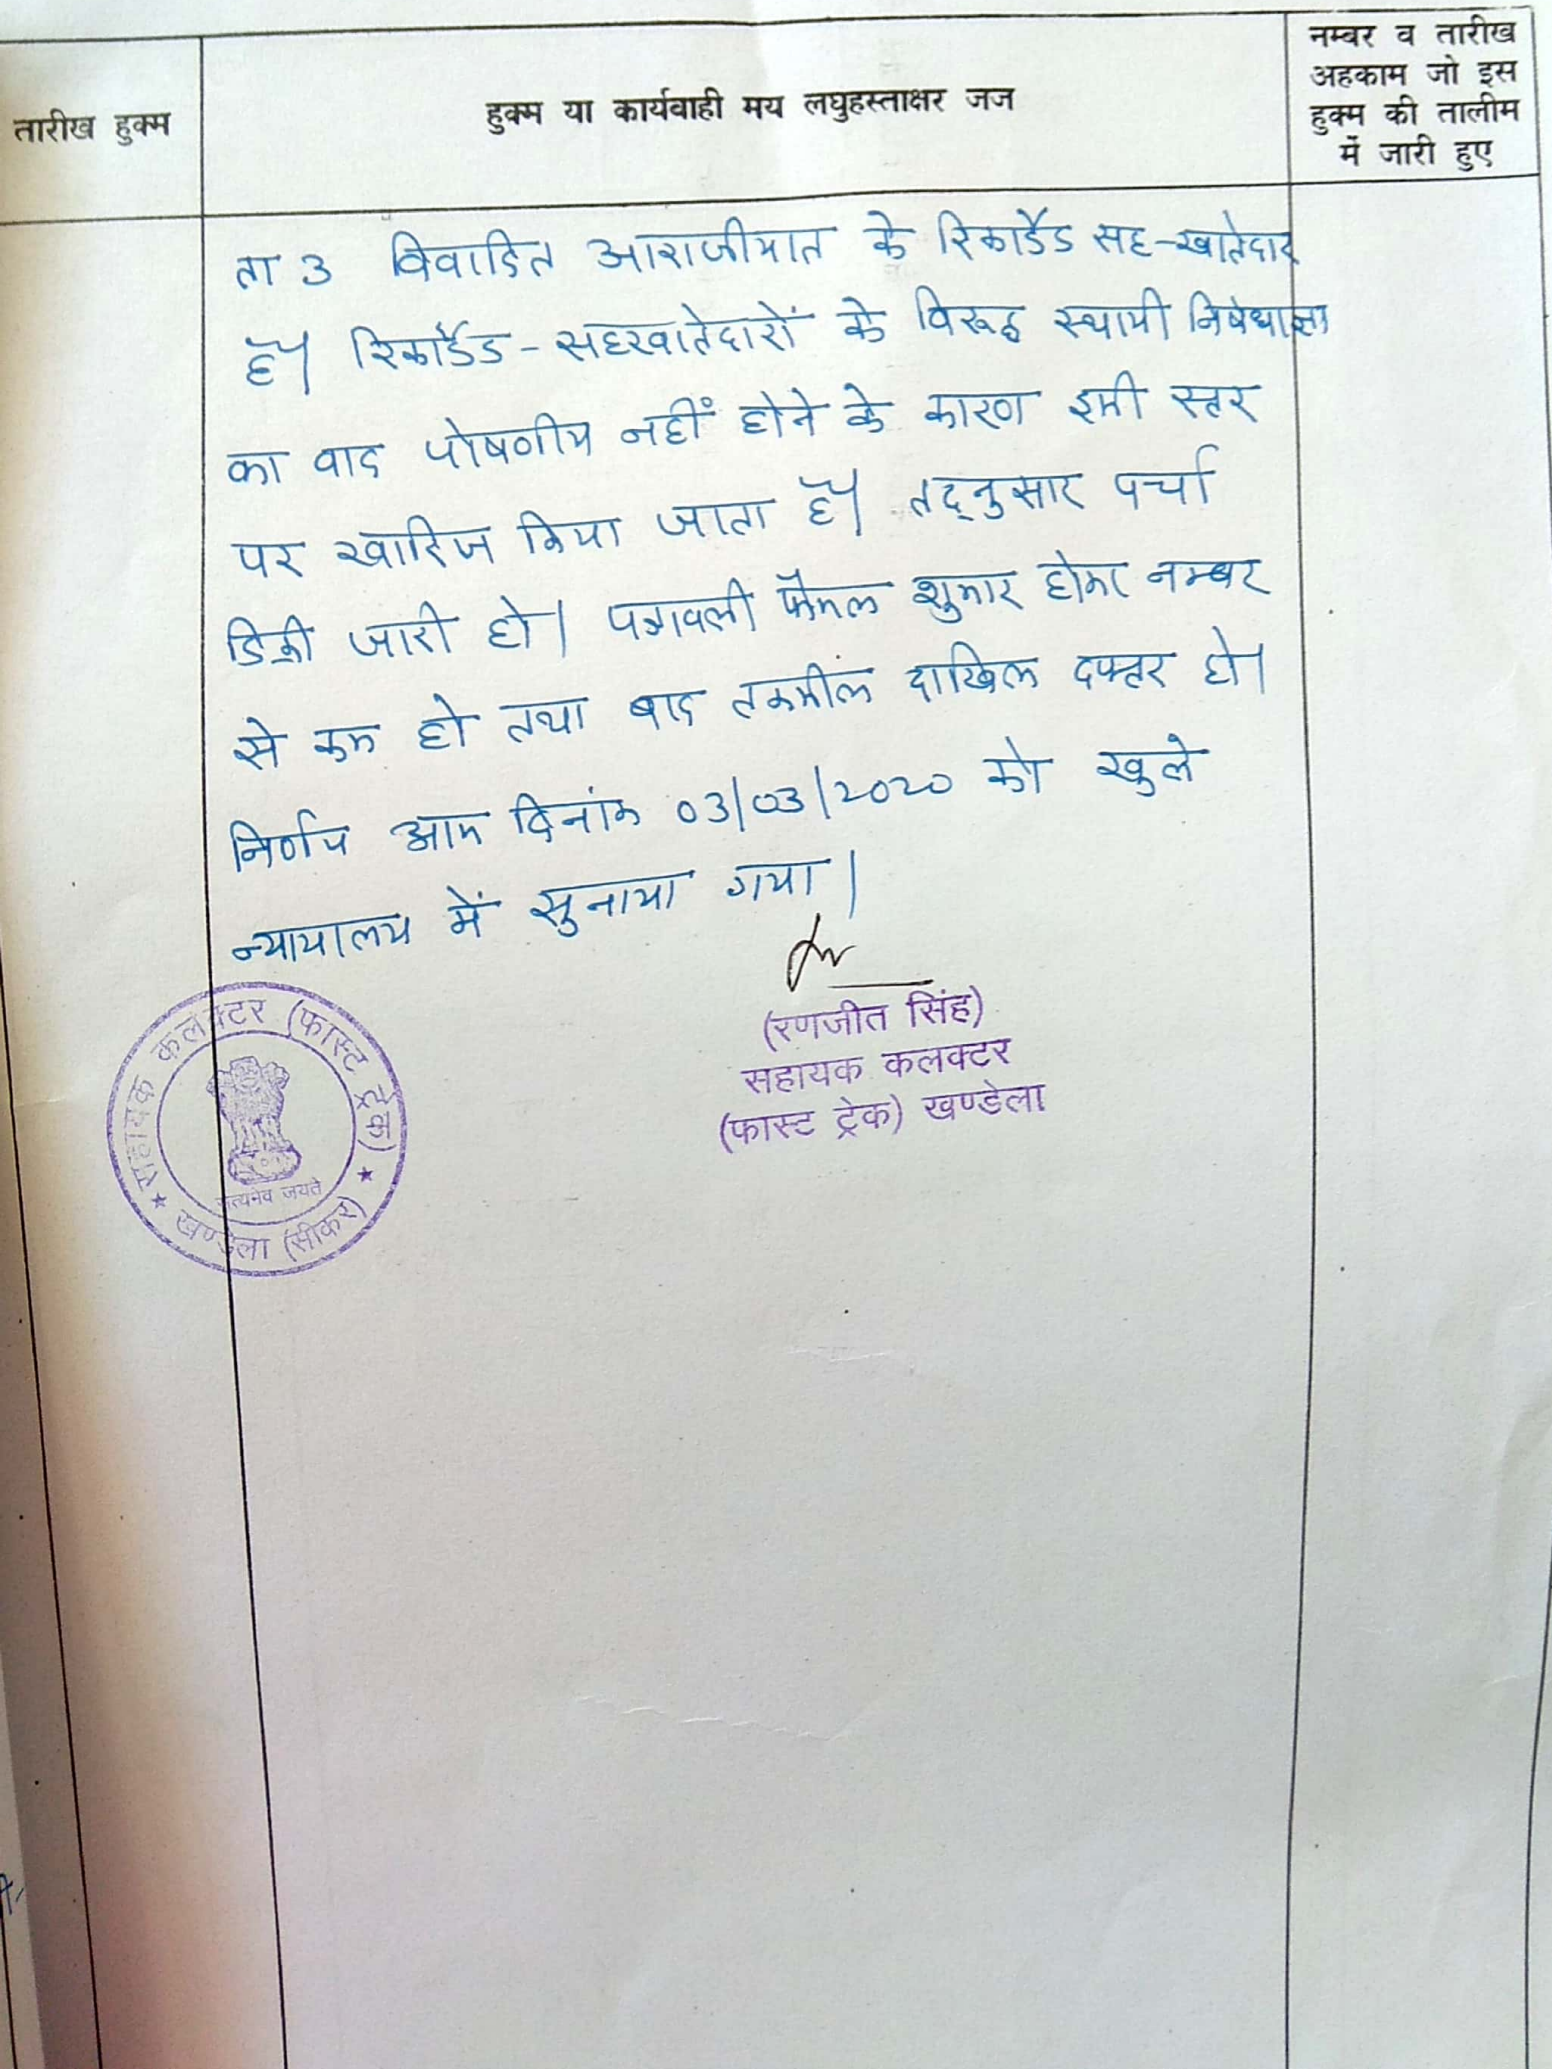 तारीख हुक्म
हुक्म या कार्यवाही मय लघुहस्ताक्षर जज
नम्बर व तारीख
अहकाम जो इस
हुक्म की तालीम
में जारी हुए
ता 3 विवादित आराजीयात के रिकार्डेड सह-खातेदार
है। रिकार्डेड-सहखातेदारों के विरूद्ध स्थायी निषेधाज्ञा
का वाद पोषणीय नहीं होने के कारण इसी स्तर
पर खारिज किया जाता है। तद्नुसार पर्चा
डिक्री जारी हो। पत्रावली फैसल शुमार होकर नम्बर
से कम हो तथा बाद तकमील दाखिल दफ्तर हो।
निर्णय आज दिनांक 03/03/2020 को खुले
न्यायालय में सुनाया गया।
(रणजीत सिंह)
सहायक कलक्टर
(फास्ट ट्रेक) खण्डेला
सहायक कलक्टर (फास्ट ट्रेक)
सत्यमेव जयते
खण्डेला (सीकर)